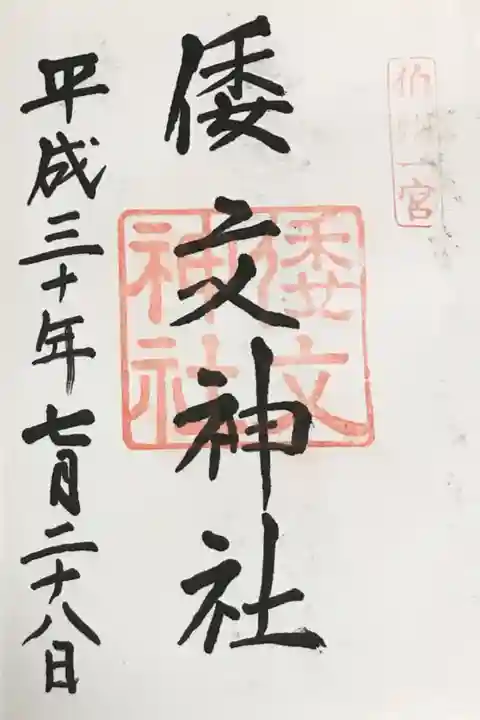 伯耆一宮
倭文神社
倭文
神社
平成三十年七月二十八日